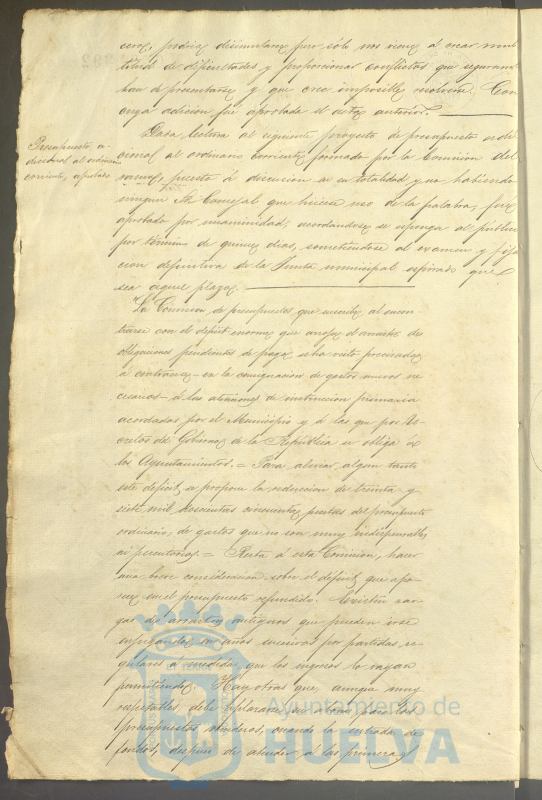 ceros, podría disimularse pero sólo nos viene á crear mul-
titud de dificultades y proporcionar conflictos que seguramte
han de presentarse y que cree imposible resolver. Con
cuya adicion fué aprobada el acta anterior.
Presupuesto a-
dicional al ordinario
corriente, aprobado
Dada lectura al siguiente proyecto de presupuesto adi-
cional al ordinario corriente formado por la Comision del
ramo, puesto á discusion en su totalidad y no habiendo
ningun Sr. Concejal que hiciese uso de la palabra, fué
aprobado por unanimidad, acordándose se esponga al público
por término de quince dias, sometiéndose al exámen y fija-
cion definitiva de la Junta municipal espirado que
sea aquel plazo.
La Comision de presupuestos que suscribe al encon-
trarse con el deficit enorme que arroja el arrastre de
obligaciones pendientes de pago se ha visto precisada
á contraerse en la consignacion de gastos nuevos ne-
cesarios á las atenciones de instruccion primaria
acordadas por el Municipio y á las que por De-
cretos del Gobierno de la República se obliga á
los Ayuntamientos. = Para aliviar algun tanto
este deficit se propone la reduccion de treinta y
siete mil doscientas cincuenta pesetas del presupuesto
ordinario, de gastos que no son muy indispensables
ni perentorios. = Resta á esta Comision, hacer
una breve consideracion sobre el déficit que apa-
rece en el presupuesto refundido. Existen car-
gas de arrastres antiguos que pueden irse
enjugando en años sucesivos por partidas re-
gulares á medida que los ingresos lo vayan
permitiendo. Hay otras que, aunque muy
respetables, debe aplazarse su pago para los
presupuestos venideros, cuando la entrada de
fondos, despues de atender á las primeras
Ayuntamiento de
HUELVA